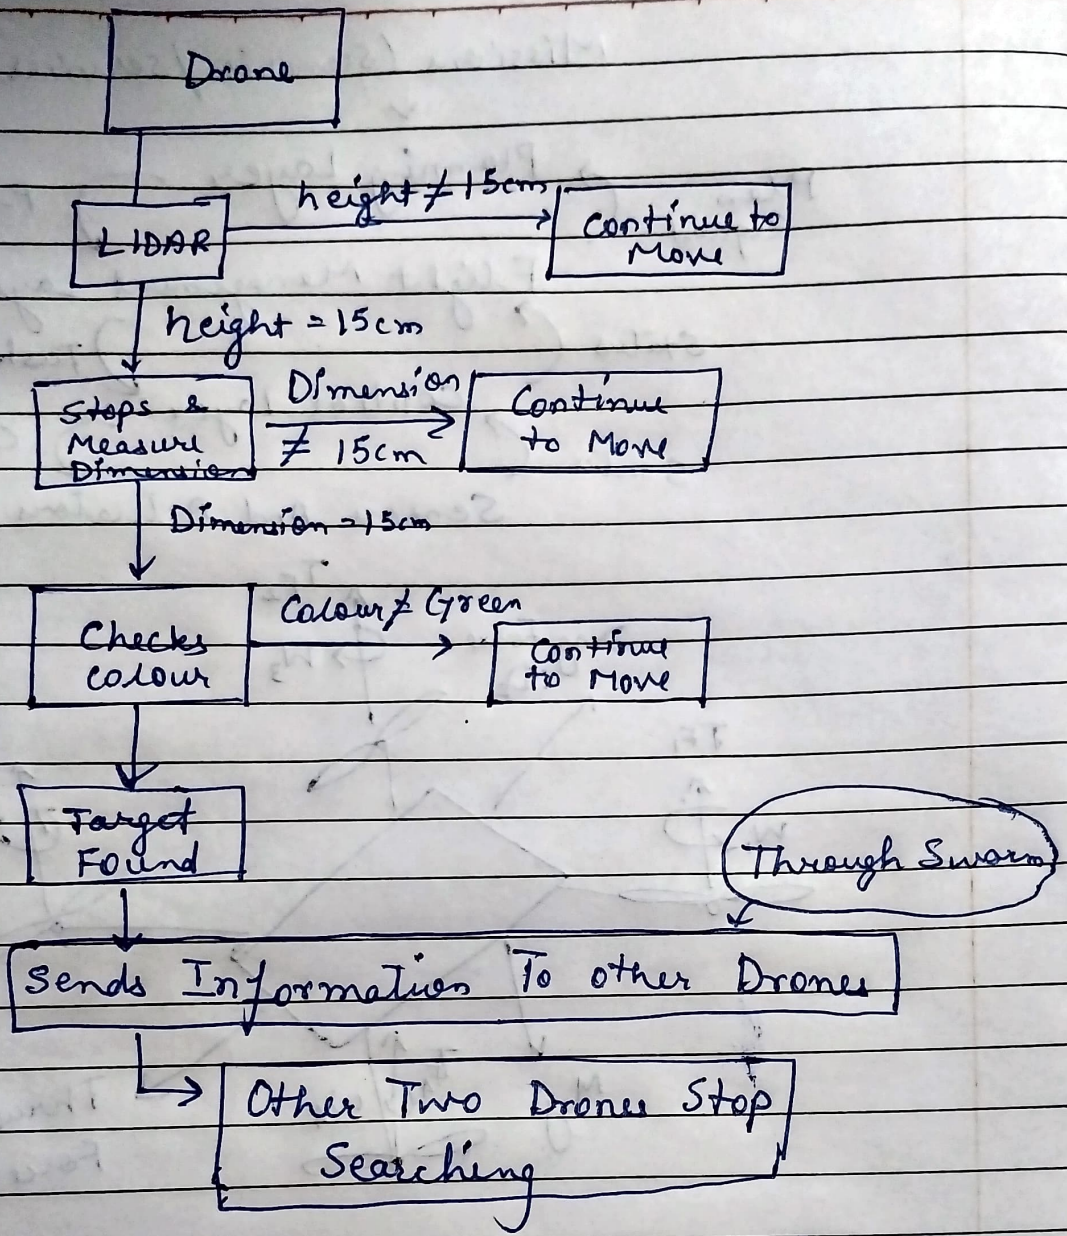 Drone
height ≠ 15cm
LIDAR
Continue to
Move
height = 15cm
Stops &
Measure
Dimension
Dimension
≠ 15cm
Continue
to Move
Dimension = 15cm
Checks
Colour
Colour ≠ Green
Continue
to Move
Target
Found
Through Swarm
Sends Information To other Drones
Other Two Drones Stop
Searching